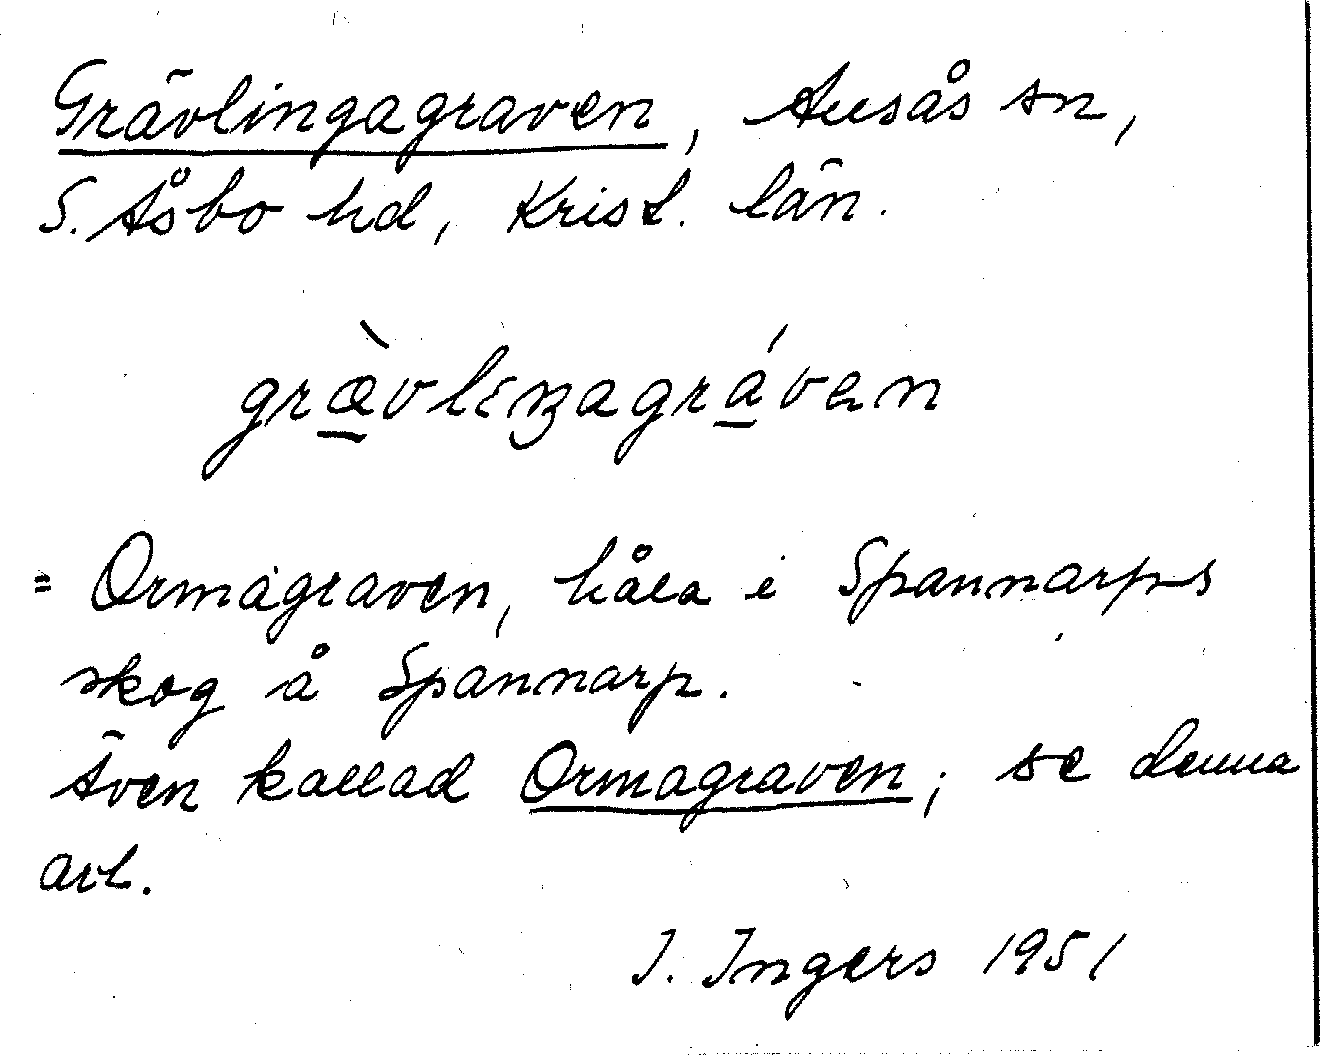 Grävlingagraven, Ausås sn,
S. Åsbo hd, Krist. län.
græ̀vliŋagráven
= Ormagraven, håla i Spannarps
skog å Spannarp.
Även kallad Ormagraven; se denna
art.
I. Ingers 1951